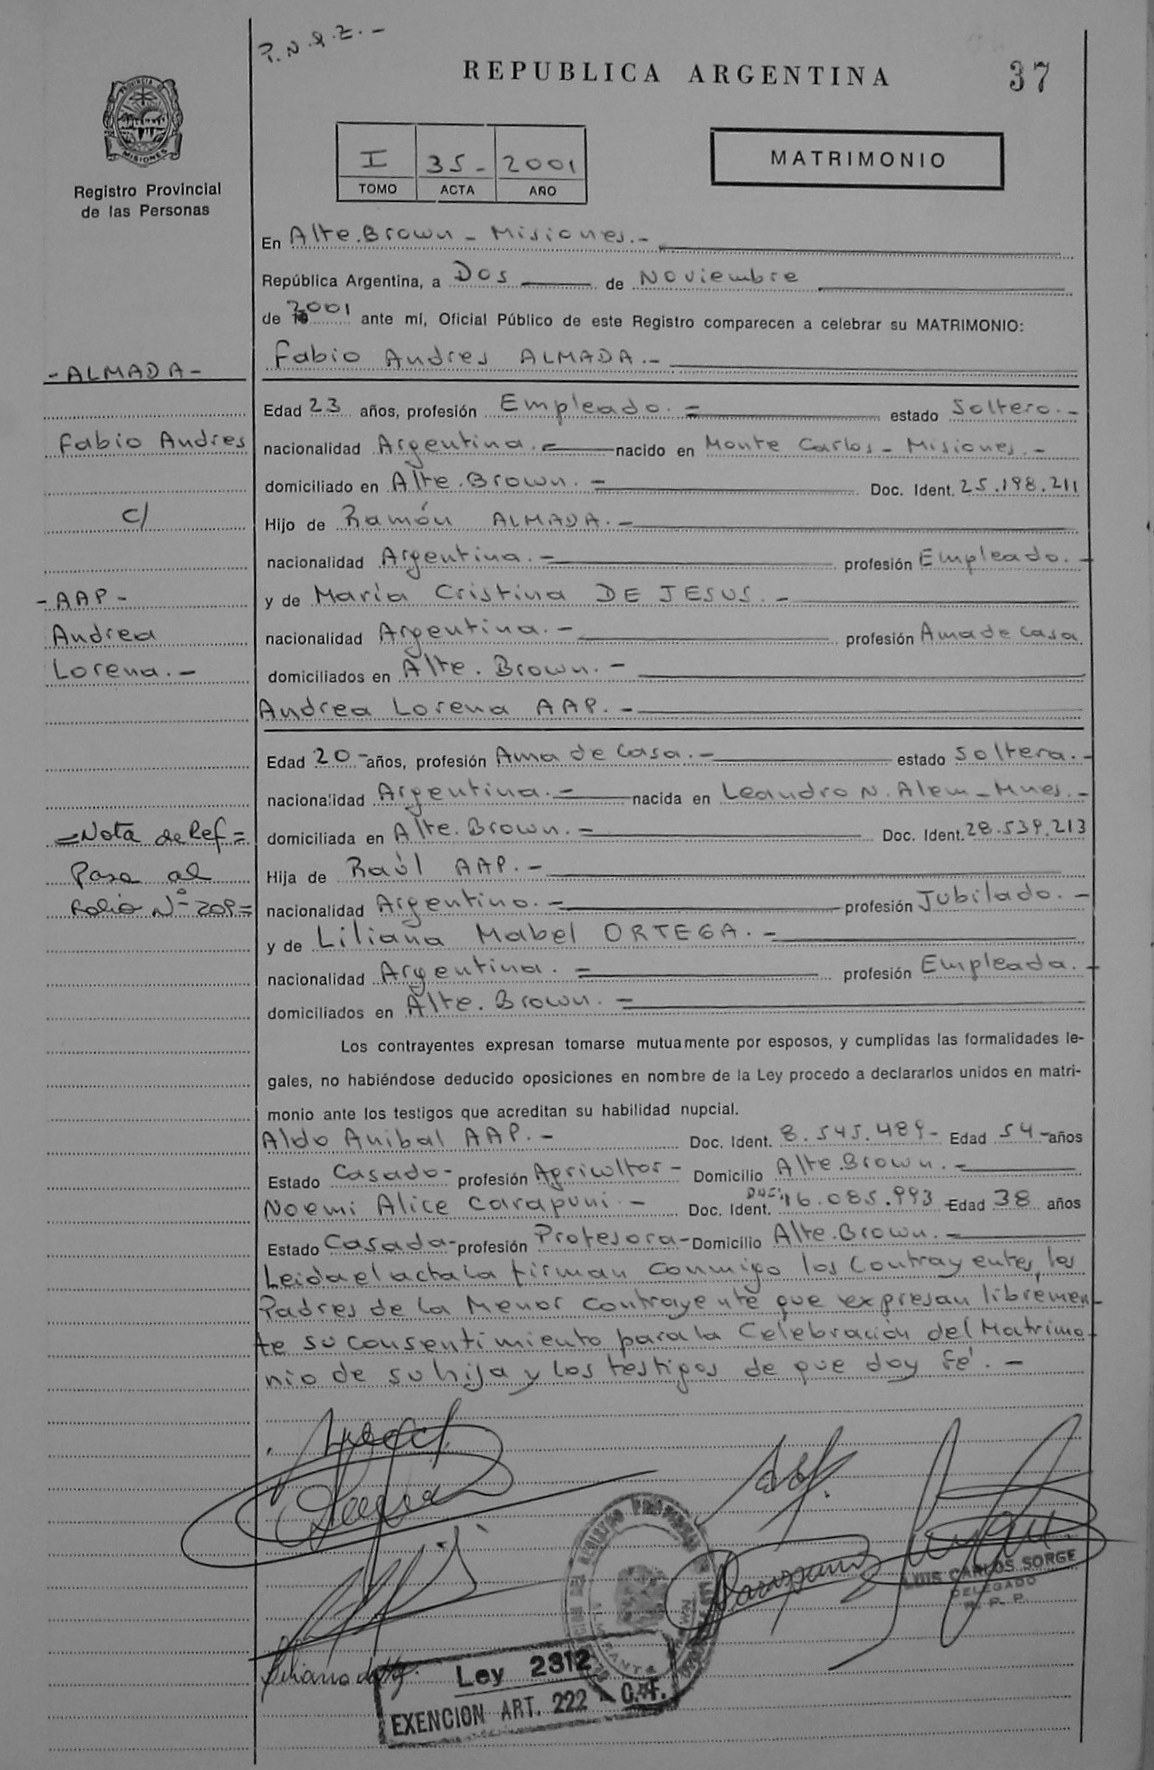 P.N.&.Z.-
REPUBLICA ARGENTINA
37
PROVINCIA
MISIONES
Registro Provincial
de las Personas
I 35- 2001
TOMO ACTA AÑO
MATRIMONIO
En Alte.Brown - Misiones.-
República Argentina, a Dos de Noviembre
de 2001 ante mí, Oficial Público de este Registro comparecen a celebrar su MATRIMONIO:
Fabio Andres ALMADA.-
-ALMADA-
Fabio Andres
c/
-AAP-
Andrea
Lorena.-
=Nota de Ref=
Pasa al
Folio Nº 209=
Edad 23 años, profesión Empleado.= estado Soltero.-
nacionalidad Argentina.- nacido en Monte Carlos - Misiones.-
domiciliado en Alte.Brown.- Doc. Ident. 25.198.211
Hijo de Ramón ALMADA.-
nacionalidad Argentina.- profesión Empleado.-
y de María Cristina DE JESUS.-
nacionalidad Argentina.- profesión Ama de Casa
domiciliados en Alte. Brown.-
Andrea Lorena AAP.-
Edad 20-años, profesión Ama de Casa.- estado Soltera.-
nacionalidad Argentina.- nacida en Leandro N. Alem - Mnes.-
domiciliada en Alte.Brown.- Doc. Ident. 28.539.213
Hija de Raúl AAP.-
nacionalidad Argentino.- profesión Jubilado.-
y de Liliana Mabel ORTEGA.-
nacionalidad Argentina.= profesión Empleada.-
domiciliados en Alte. Brown.=
Los contrayentes expresan tomarse mutuamente por esposos, y cumplidas las formalidades le-
gales, no habiéndose deducido oposiciones en nombre de la Ley procedo a declararlos unidos en matri-
monio ante los testigos que acreditan su habilidad nupcial.
Aldo Anibal AAP.- Doc. Ident. 8.545.489- Edad 54-años
Estado Casado- profesión Agricultor- Domicilio Alte.Brown.-
Noemi Alice Carapuni- Doc. Ident. 16.085.993 Edad 38 años
Estado Casada-profesión Profesora-Domicilio Alte.Brown.-
Leida el acta la firman conmigo los Contrayentes, los
Padres de la Menor contrayente que expresan libremen-
te su consentimiento para la Celebración del Matrimo-
nio de su hija y los testigos de que doy Fé.-
LUIS CARLOS SORGE
DELEGADO
R. P. P.
Ley 2312
EXENCION ART. 222 C.F.